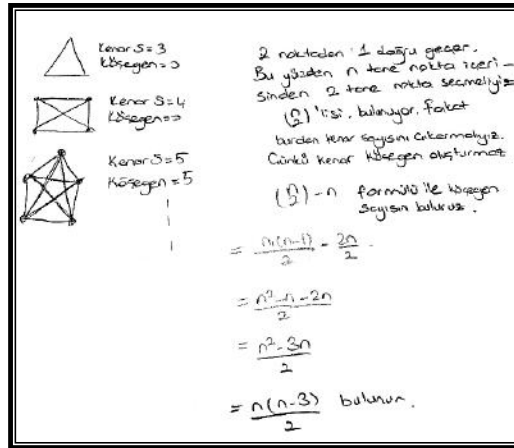 Kenar S = 3
Köşegen = 0
Kenar S = 4
Köşegen =
Kenar S = 5
Köşegen = 5
2 noktadan 1 doğru geçer.
Bu yüzden n tane nokta içeri-
sinden 2 tane nokta seçmeliyiz
(n 2)'lisi bulunuyor, fakat
burdan kenar sayısını çıkarmalıyız.
Çünkü kenar köşegen oluşturmaz
(n 2) - n formülü ile köşegen
sayısın buluruz.
= n(n-1)/2 - 2n/2
= n²-n-2n/2
= n²-3n/2
= n(n-3)/2 bulunur.